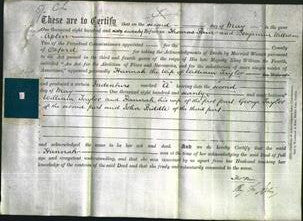 These are to Certify that on the second day of May in the year
One thousand eight hundred and sixty seventy before us Thomas and Benjamin William
Aplin
Two of the Perpetual Commissioners appointed for the
County of Oxford for taking the Acknowledgments of Deeds by Married Women pursuant
to an Act passed in the third and fourth years of the reign of his late Majesty King William the Fourth
intituled "An Act for the Abolition of Fines and Recoveries, and for the substitution of more simple modes of
Assurance," appeared personally Hannah the wife of William Taylor
and produced a certain Indenture marked A bearing the second
day of May One thousand eight hundred and seventy and made between
William Taylor and Hannah his wife of the first part George Taylor
of the second part and John Riddle of the third part
and acknowledged the same to be her act and deed. And we do hereby Certify that the said
Hannah was at the time of her acknowledging the said Deed of full
age and competent understanding, and that she was examined by us apart from her Husband touching her
knowledge of the contents of the said Deed and that she freely and voluntarily consented to the same.